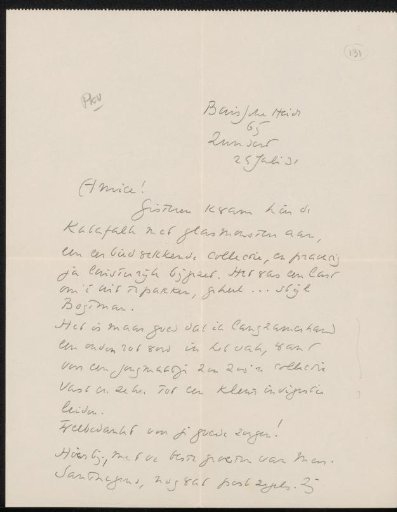 131
PKV
65
Zundert
25 Juli 31
Amice!
Gisteren kwam hier de
Katafalk met glasmonsters aan,
een eerbiedwekkende collectie, en prachtig
ja luisterrijk bijgezet. Het was een last
om 't uit te pakken, geheel ... stijl
Bogtman.
Het is maar goed dat ik langzamerhand
een oude rot word in het vak, want
voor een jong maatje zou zoo'n collectie
vast en zeker tot een kleur indigestie
leiden.
Veel bedankt voor je goede zorgen!
Hartelijk, met de beste groeten van
nog wat postzegels.